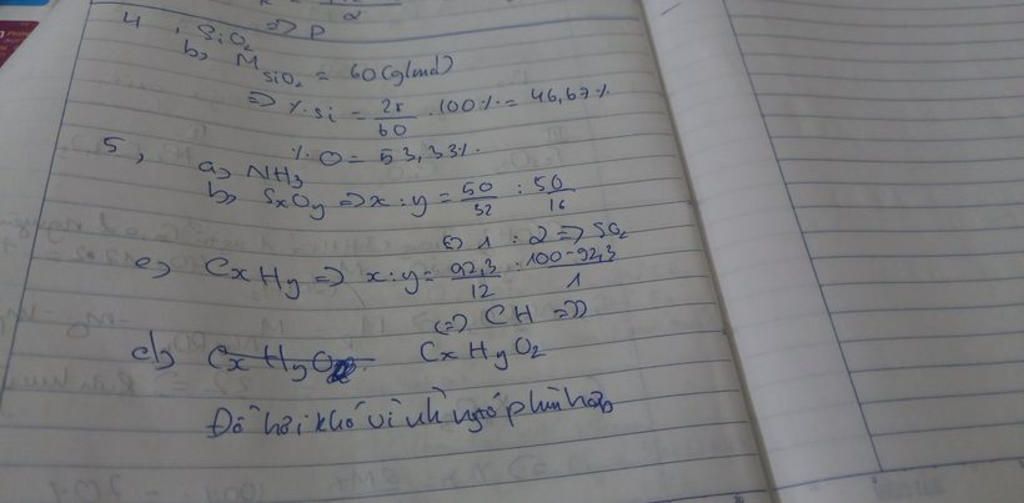 2
=> P
4, SiO2
b, M SiO2 = 60 (g/mol)
=> % Si = 28/60 . 100% = 46,67%
% O = 53,33%.
5,
a, NH3
b, SxOy => x : y = 50/32 : 50/16
<=> 1 : 2 => SO2
c, CxHy => x : y = 92,3/12 : 100-92,3/1
<=> CH =>
d, CxHyO2 CxHyO2
Đề hơi khó vì